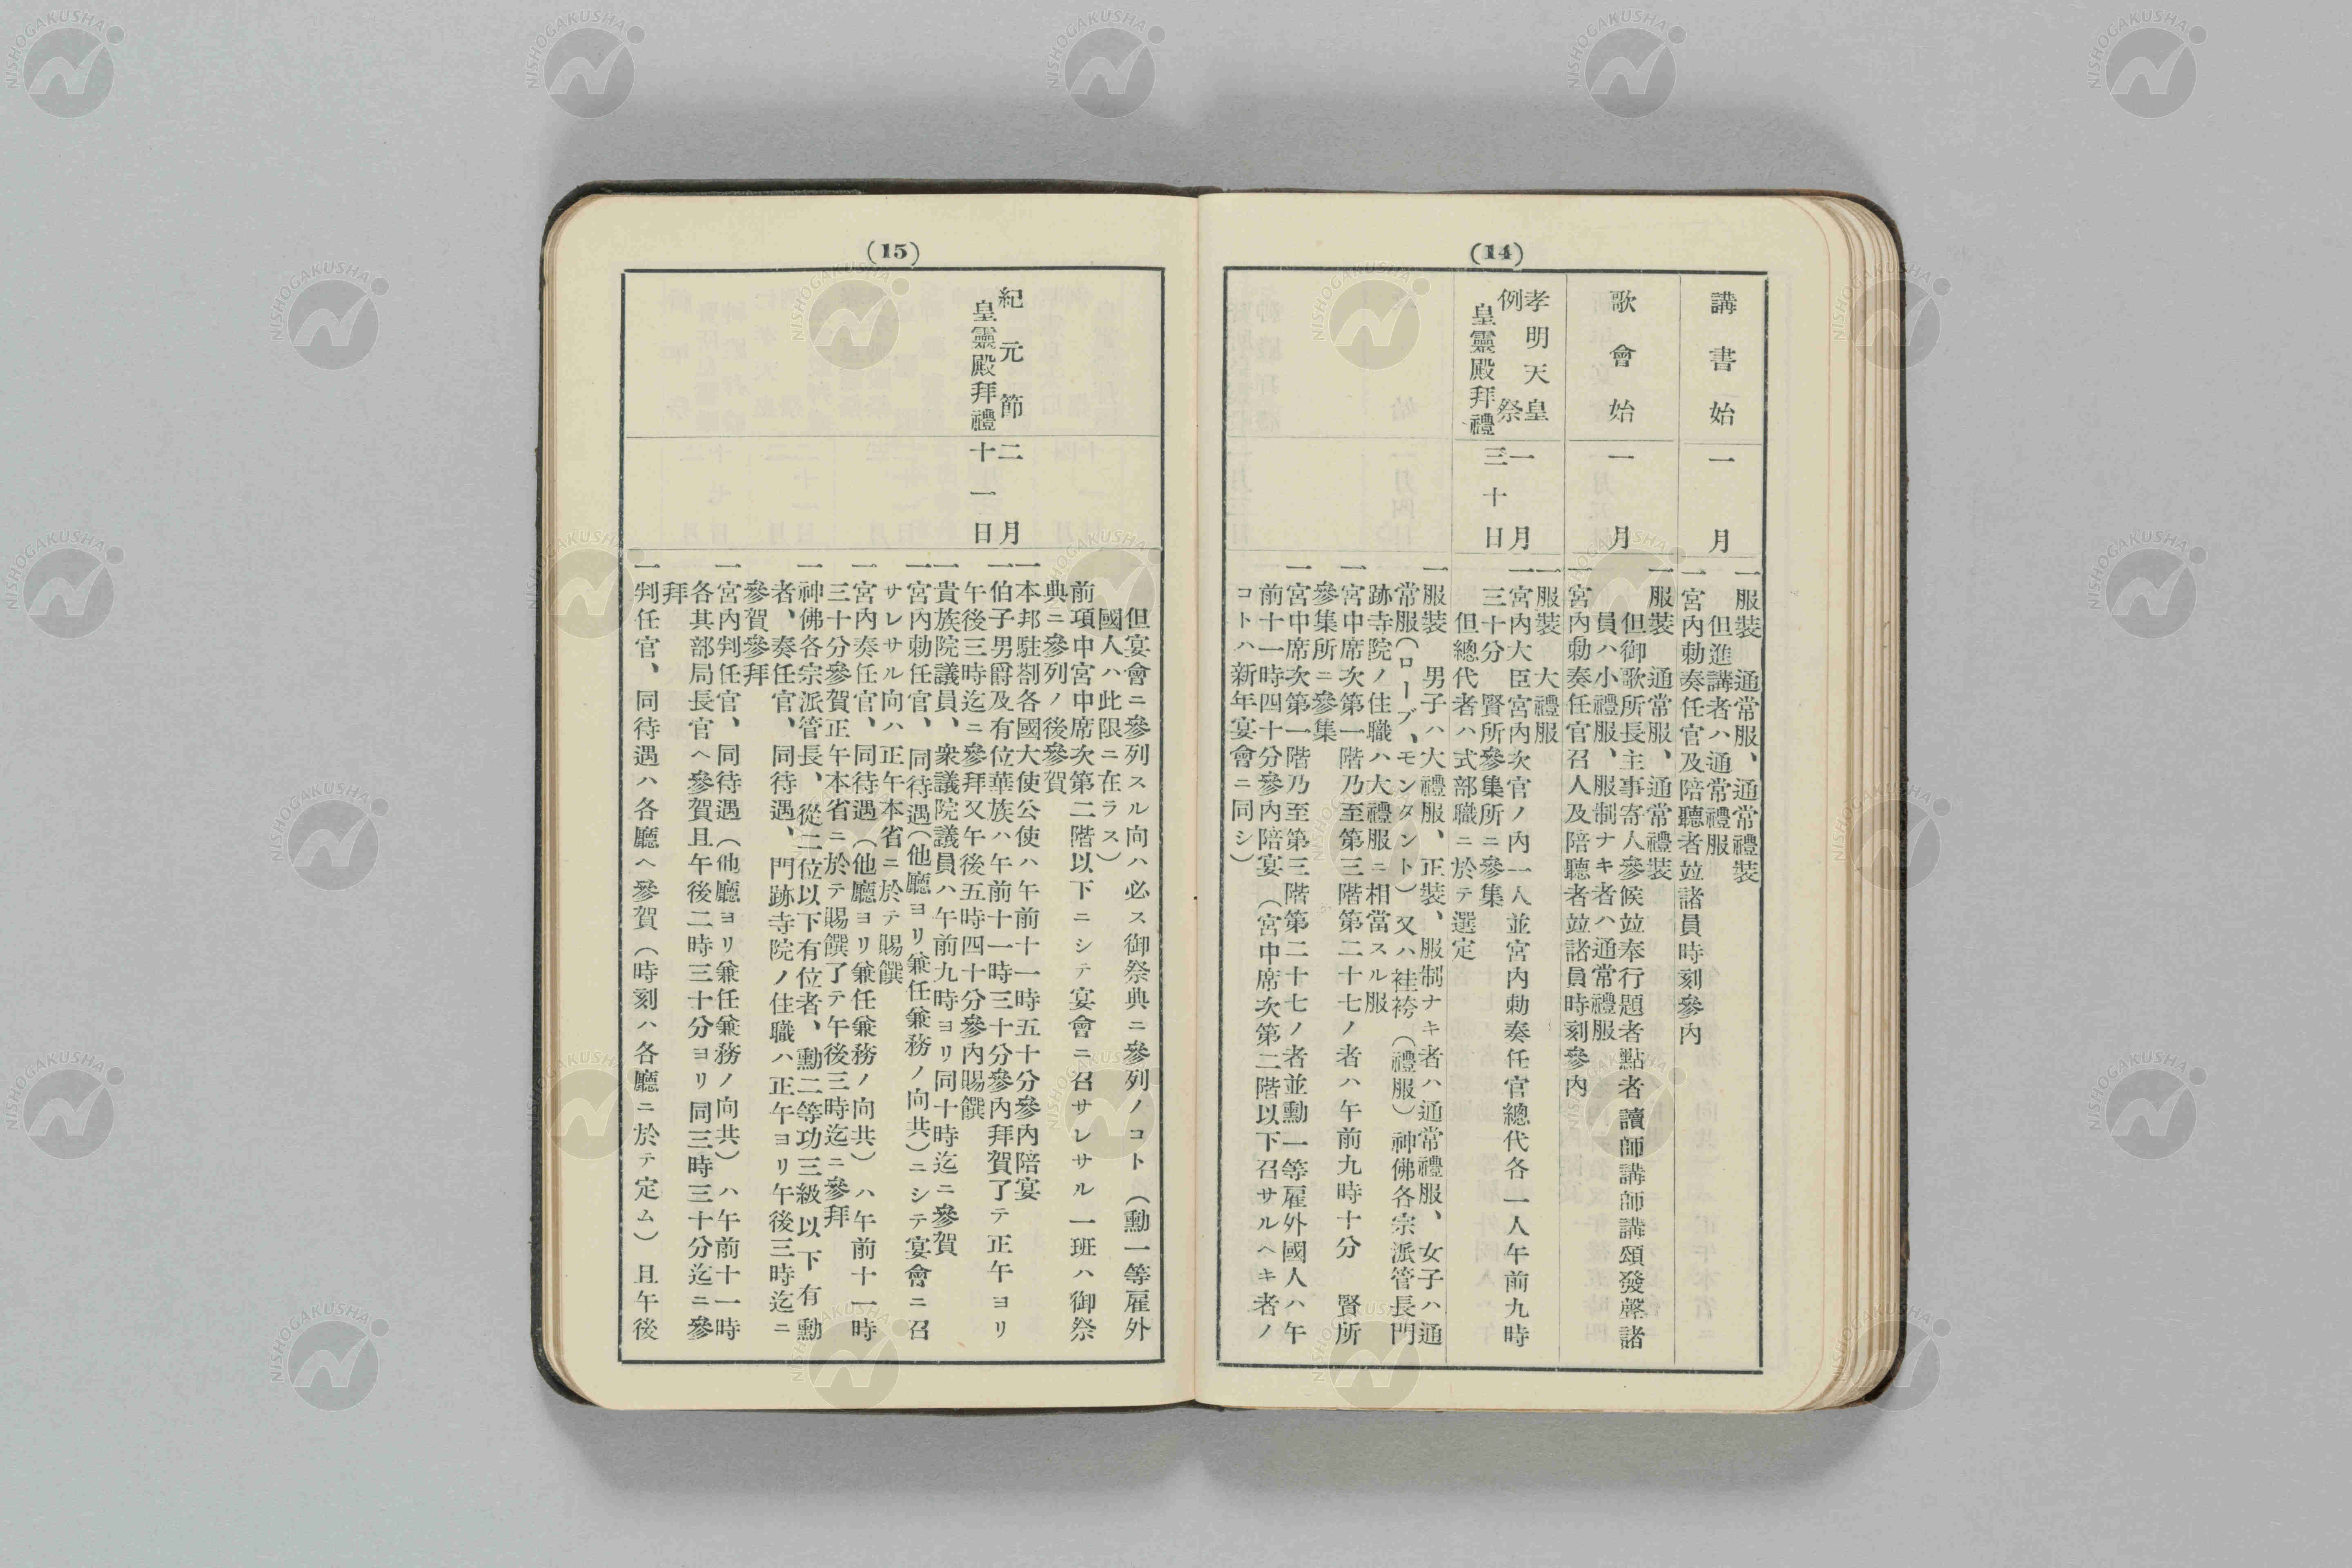 (14)
講書始
一月
一服裝　通常服、通常禮裝
但進講者ハ通常禮服
一宮內勅奏任官及陪聽者竝諸員時刻參內
歌會始
一月
一服裝　通常服、通常禮裝
但御歌所長主事寄人參候竝奉行題者點者讀師講師講頌發聲諸
員ハ小禮服、服制ナキ者ハ通常禮服
一宮內勅奏任官召人及陪聽者竝諸員時刻參內
孝明天皇
例祭
皇靈殿拜禮
一月
三十日
一服裝　大禮服
一宮內大臣宮內次官ノ內一人並宮內勅奏任官總代各一人午前九時
三十分　賢所參集所ニ參集
但總代者ハ式部職ニ於テ選定
紀元節
皇靈殿拜禮
二月
十一日
一服裝　男子ハ大禮服、正裝、服制ナキ者ハ通常禮服、女子ハ通
常服(ローブ、モンタント)又ハ袿袴(禮服)神佛各宗派管長門
跡寺院ノ住職ハ大禮服ニ相當スル服
一宮中席次第一階乃至第三階第二十七ノ者ハ午前九時十分　賢所
參集所ニ參集
一宮中席次第一階乃至第三階第二十七ノ者並勳一等雇外國人ハ午
前十一時四十分參內陪宴(宮中席次第二階以下召サルヘキ者ノ
コトハ新年宴會ニ同シ)
(15)
但宴會ニ參列スル向ハ必ス御祭典ニ參列ノコト(勳一等雇外
國人ハ此限ニ在ラス)
前項中宮中席次第二階以下ニシテ宴會ニ召サレサル一班ハ御祭
典ニ參列ノ後參賀
一本邦駐劄各國大使公使ハ午前十一時五十分參內陪宴
一伯子男爵及有位華族ハ午前十一時三十分參內拜賀了テ正午ヨリ
午後三時迄ニ參拜又午後五時四十分參內賜饌
一貴族院議員、衆議院議員ハ午前九時ヨリ同十時迄ニ參賀
一宮內勅任官、同待遇(他廳ヨリ兼任兼務ノ向共)ニシテ宴會ニ召
サレサル向ハ正午本省ニ於テ賜饌
一宮內奏任官、同待遇(他廳ヨリ兼任兼務ノ向共)ハ午前十一時
三十分參賀正午本省ニ於テ賜饌了テ午後三時迄ニ參拜
一神佛各宗派管長、從二位以下有位者、勳二等功三級以下有勳
者、奏任官、同待遇、門跡寺院ノ住職ハ正午ヨリ午後三時迄ニ
參賀參拜
一宮內判任官、同待遇(他廳ヨリ兼任兼務ノ向共)ハ午前十一時
各其部局長官ヘ參賀且午後二時三十分ヨリ同三時三十分迄ニ參
拜
一判任官、同待遇ハ各廳ヘ參賀(時刻ハ各廳ニ於テ定ム)且午後
NISHOGAKUSHA